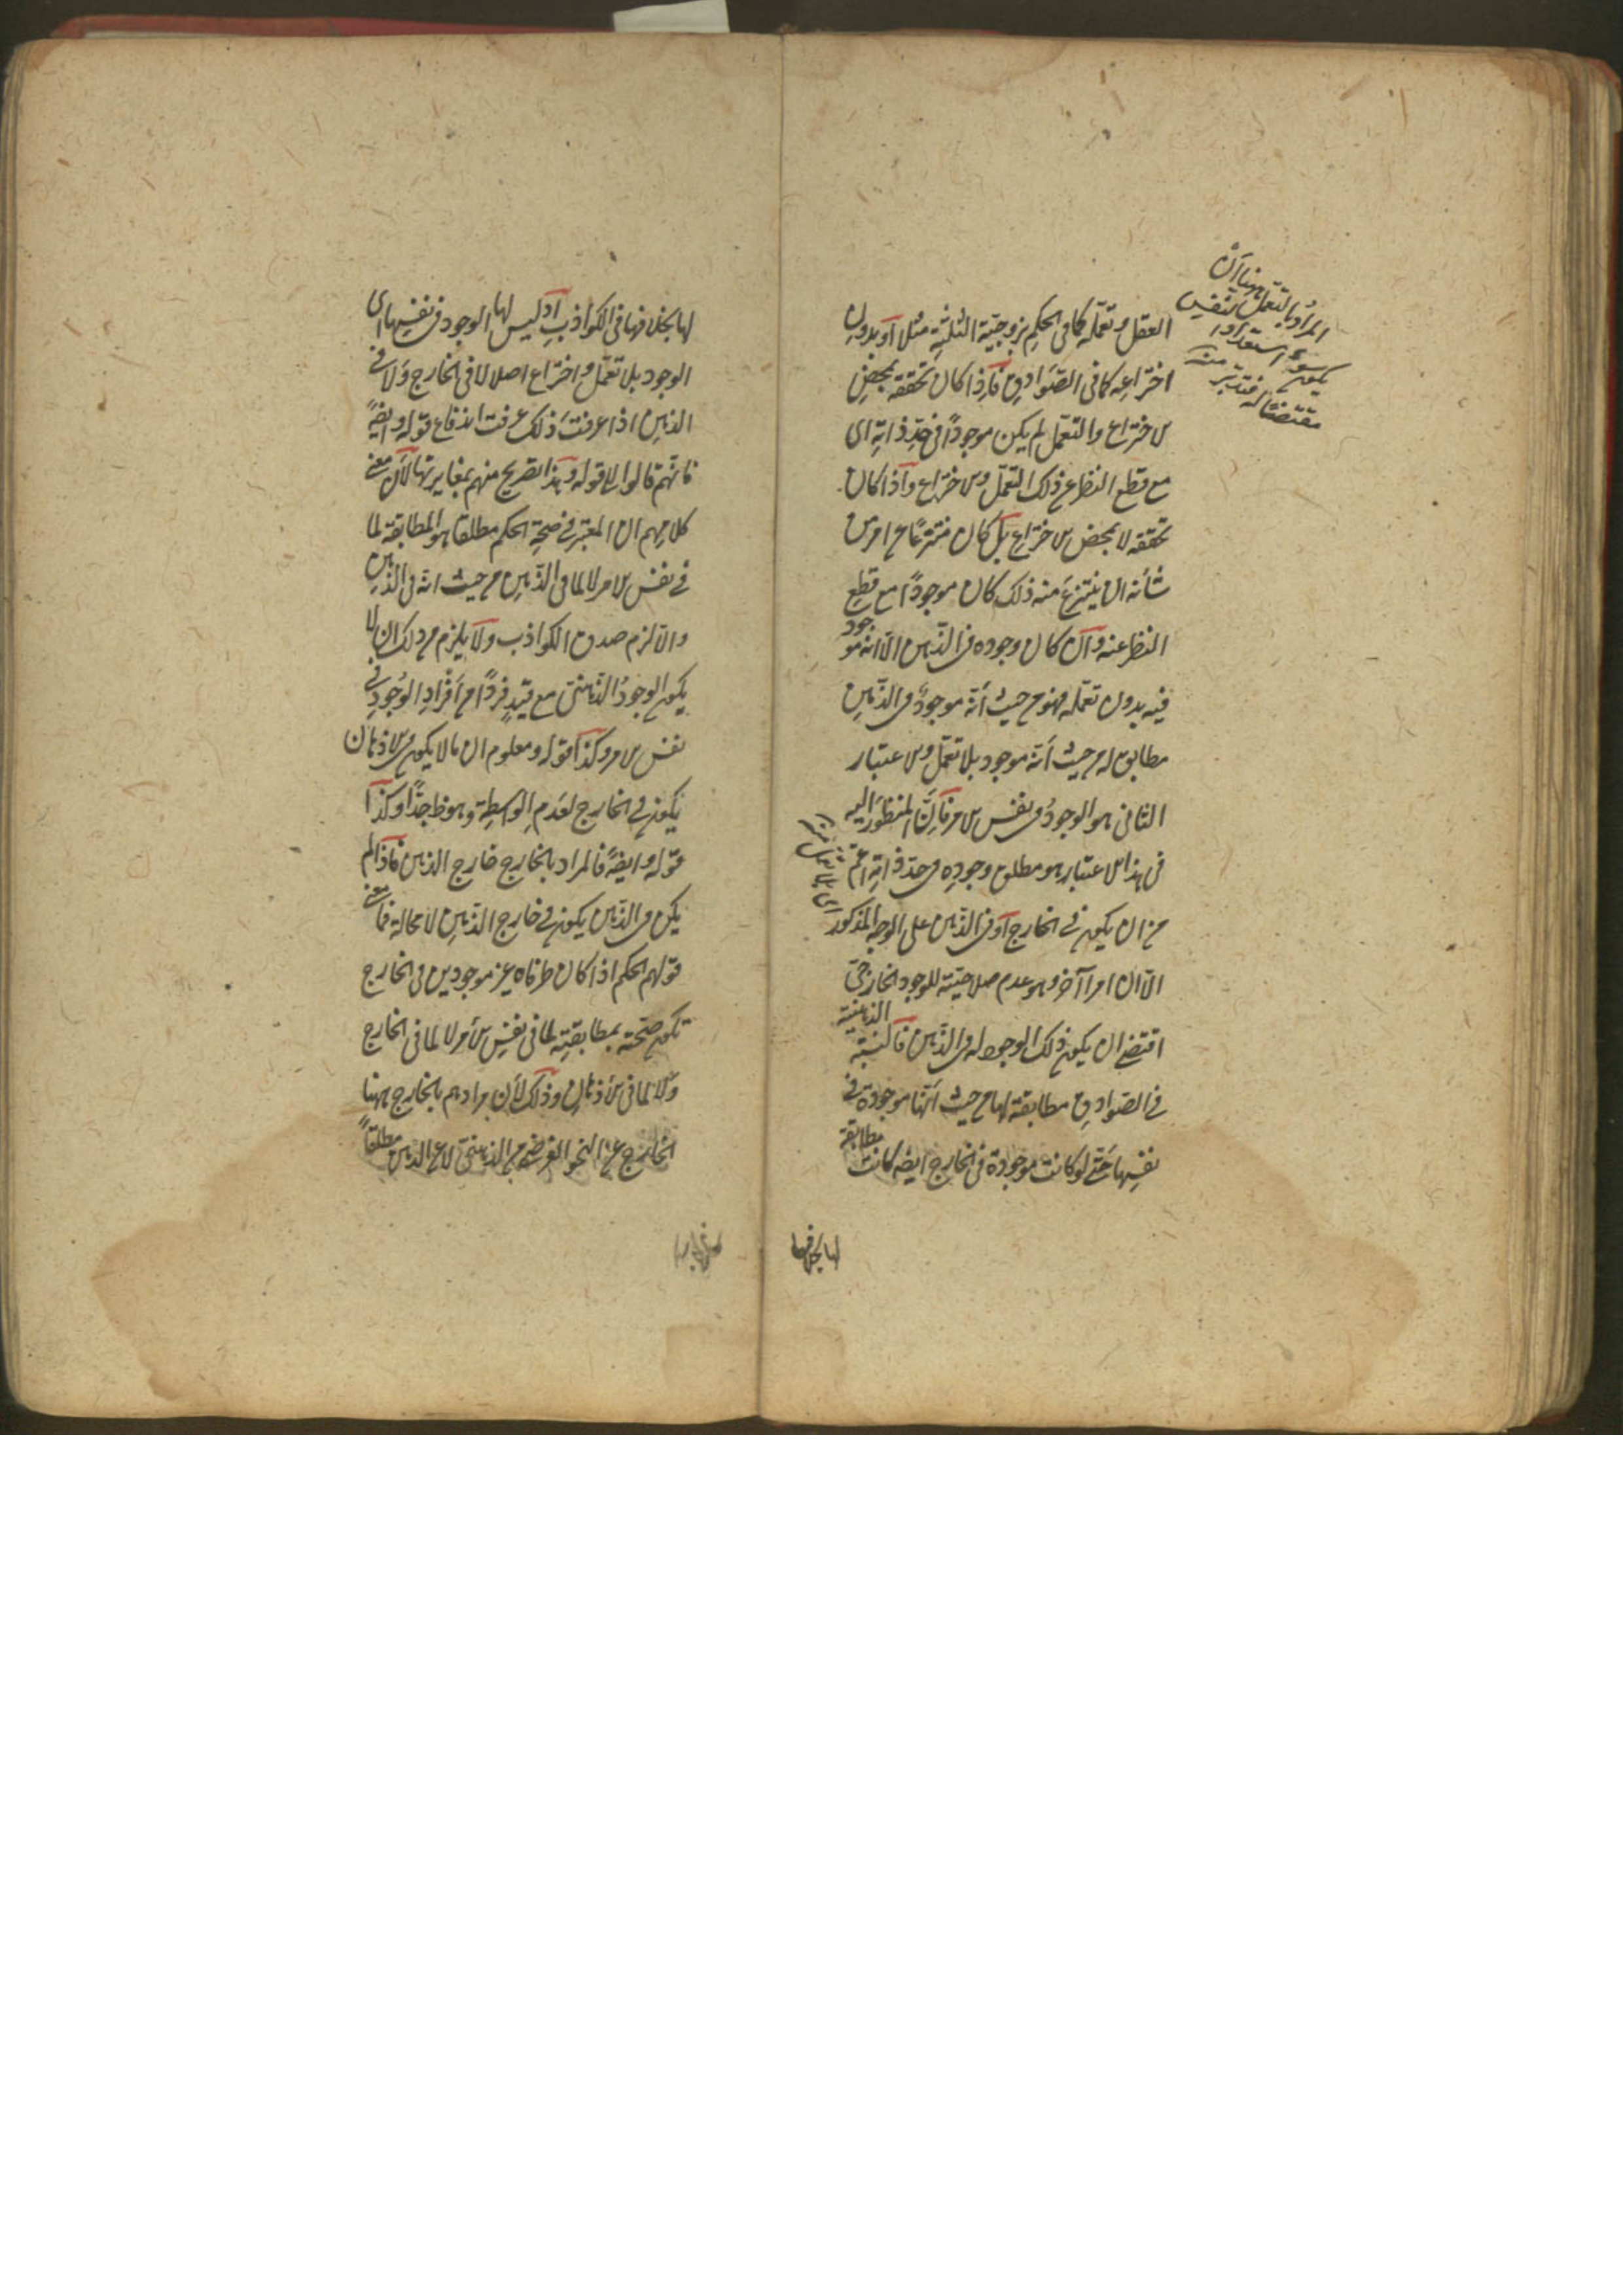 المراد بالتعمل ههنا أن
يكون سوء استعداد النفس
مقتضيًا له فتدبر منه
العقل وتعمّله كما في الحكمِ بزوجيّة الثلثةِ مثلا أو بدون
اختراعِه كما في الصّوادق فإذا كان تحققه بمحضِ
الاختراع والتعمّل لم يكن موجودًا في حدّ ذاتهِ اى
مع قطع النظر عن ذلك التعمّل والاختراع وإذا كان
تحققه لا بمحض الاختراع بل كان منتزعًا عن امر من
شأنه ان ينتزعَ منه ذلك كان موجودًا مع قطع
النظر عنه وان كان وجوده في الذّهن الّا انه موجود
فيه بدون تعمّله فهو من حيث أنّه موجودٌ في الذّهنِ
مطابق له من حيث أنّه موجود بلا تعمّل والاعتبار
الثانى هو الوجودُ في نفس الامر فإنّ المنظورَ اليه
في هذا الاعتبار هو مطلق وجودِه في حدّ ذاتِه اعمّ
من ان يكون في الخارج أو في الذّهن على الوجه المذكور
الّا ان امرا آخر وهو عدم صلاحيّته للوجود الخارجىّ
اقتضى ان يكون ذلك الوجود له في الذّهن فالنسبة الذهنية
في الصّوادق مطابقة لها من حيث أنّها موجودة في
نفسِها حتّى لو كانت موجودة في الخارج ايضا كانت مطابقة
لها بخلافها
لها بخلافها في الكواذبِ اذ ليس لها الوجود في نفسِها اى
الوجود بلا تعمّل واختراع اصلا لا في الخارج ولا في
الذهن اذا عرفتَ ذلك عرفت اندفاع قوله وايضًا
فانّهم قالوا الى قوله وهذا تصريح منهم بمغايرتها لأن معنى
كلامهم ان المعتبر في صحة الحكم مطلقا هو المطابقة لما
في نفس الامر لا لما في الذّهن من حيث انه في الذّهن
والّا لزم صدق الكواذب ولا يلزم من ذلك ان لا
يكون الوجودُ الذّهنىّ مع قيدٍ فردًا من أفرادِ الوجودِ في
نفس الامر وكذا قوله ومعلوم ان ما لا يكون في الاذهان
يكون في الخارج لعَدمِ الواسطةِ وهو ظ جدًّا وكذا
قوله وايضًا فالمراد بالخارج خارج الذهن فإذا لم
يكن في الذّهن يكون في خارج الذّهنِ لا محالة فما معنى
قولهم الحكم اذا كان طرفاه غير موجودين في الخارج
تكون صحّته بمطابقتِه لما في نفسِ الأمر لا لما في الخارج
ولا لما في الأذهان وذلك لأن مرادهم بالخارج ههنا
الخارج عن النحو الفرضىّ من الذهنىّ لا عن الذهن مطلقًا